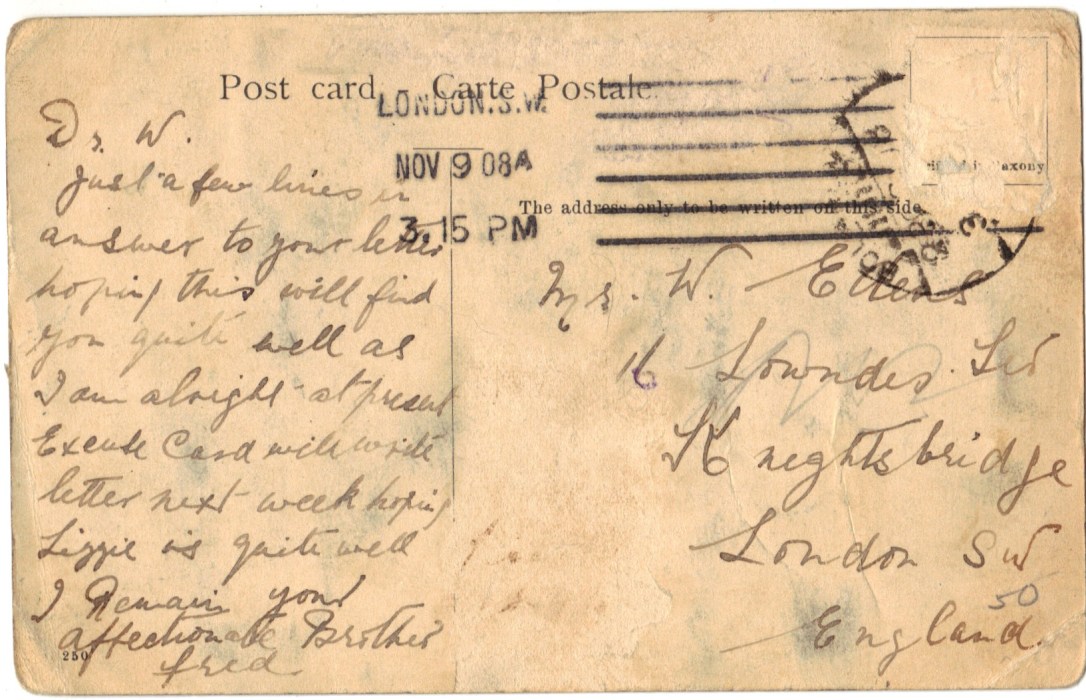 Post card. Carte Postale.
LONDON.S.W.
NOV 9 08A
3. 15 PM
The address only to be written on this side
Dr. W.
Just a few lines in
answer to your letter
hoping this will find
you quite well as
I am alright at present
Excuse Card will write
letter next week hoping
Lizzie is quite well
I Remain your
affectionate Brother
fred
250
Mr. W.
16 Lowndes
Kneghtsbridge
London SW
50
England.